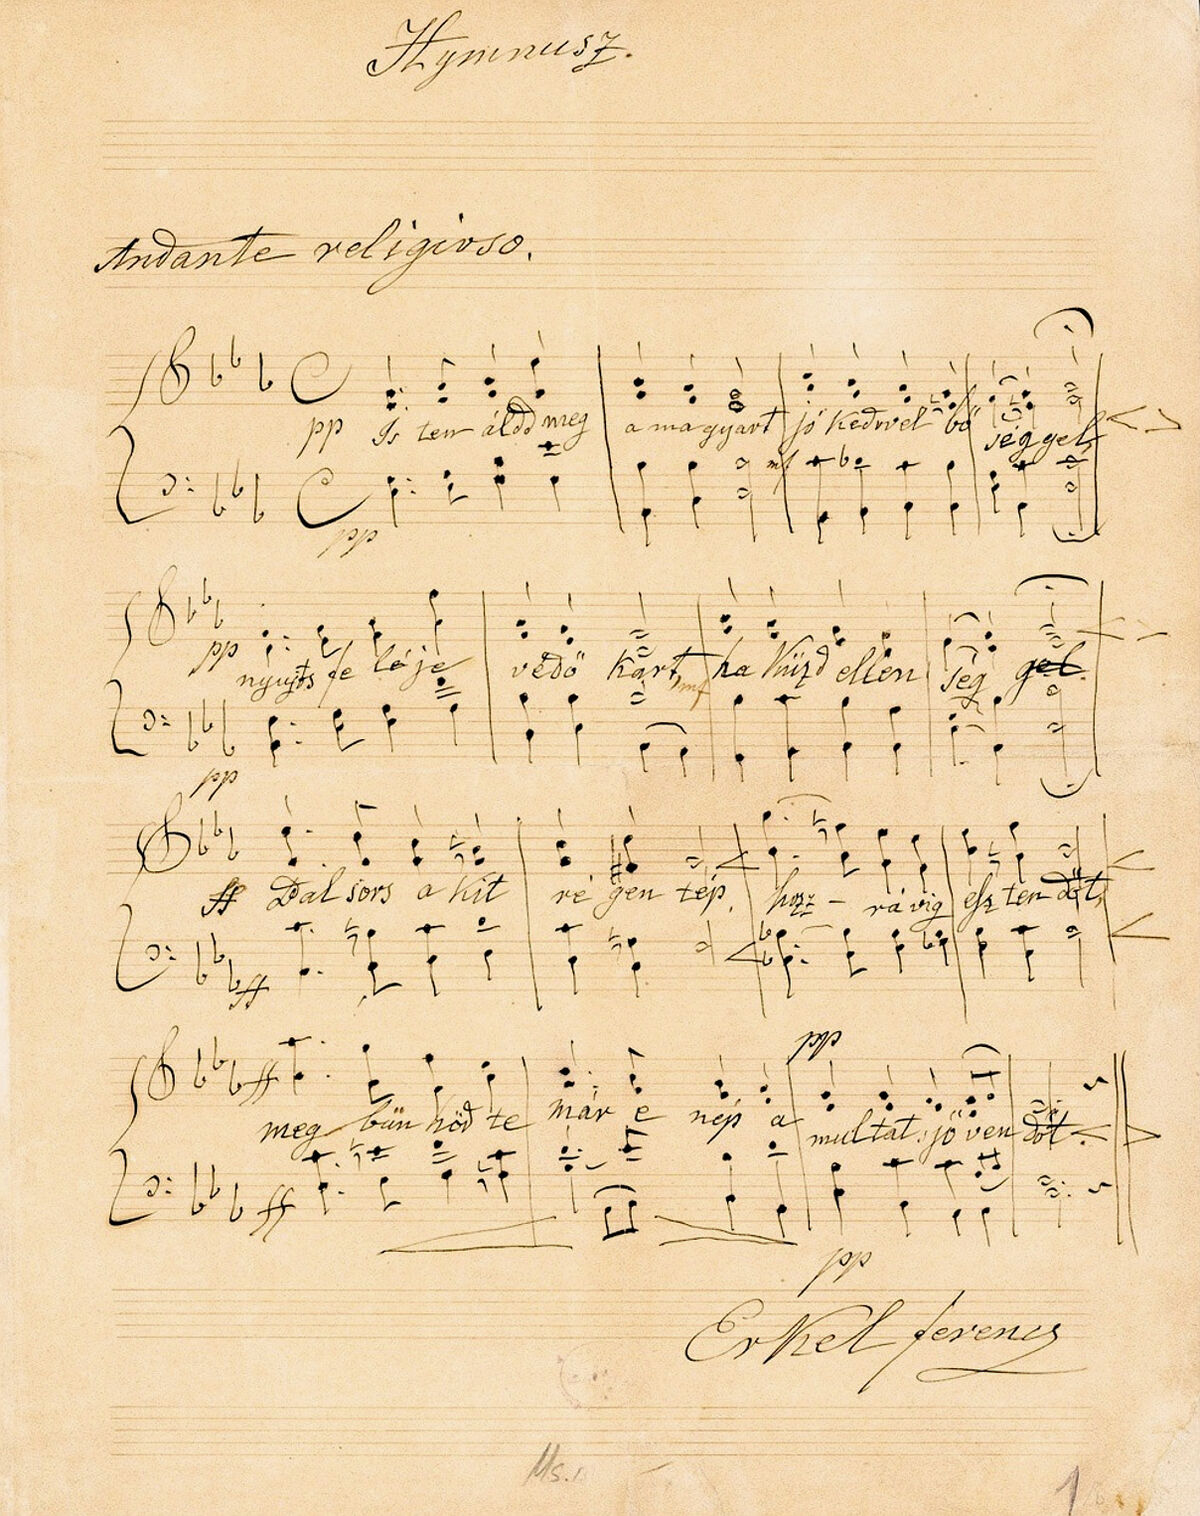 Hymnusz.
Andante religioso.
pp Is ten áldd meg a magyart jó kedvvel bő séggel,
mf
pp
pp nyujts fe léje védő kart, mf ha küzd ellen ség gel.
pp
ff Bal sors a kit ré gen tép, hozz - rá víg esz ten dőt,
ff
pp
ff meg bün hőd te már e nép a multat, jö ven dőt.
ff
pp
Erkel ferencz
Ms.
1